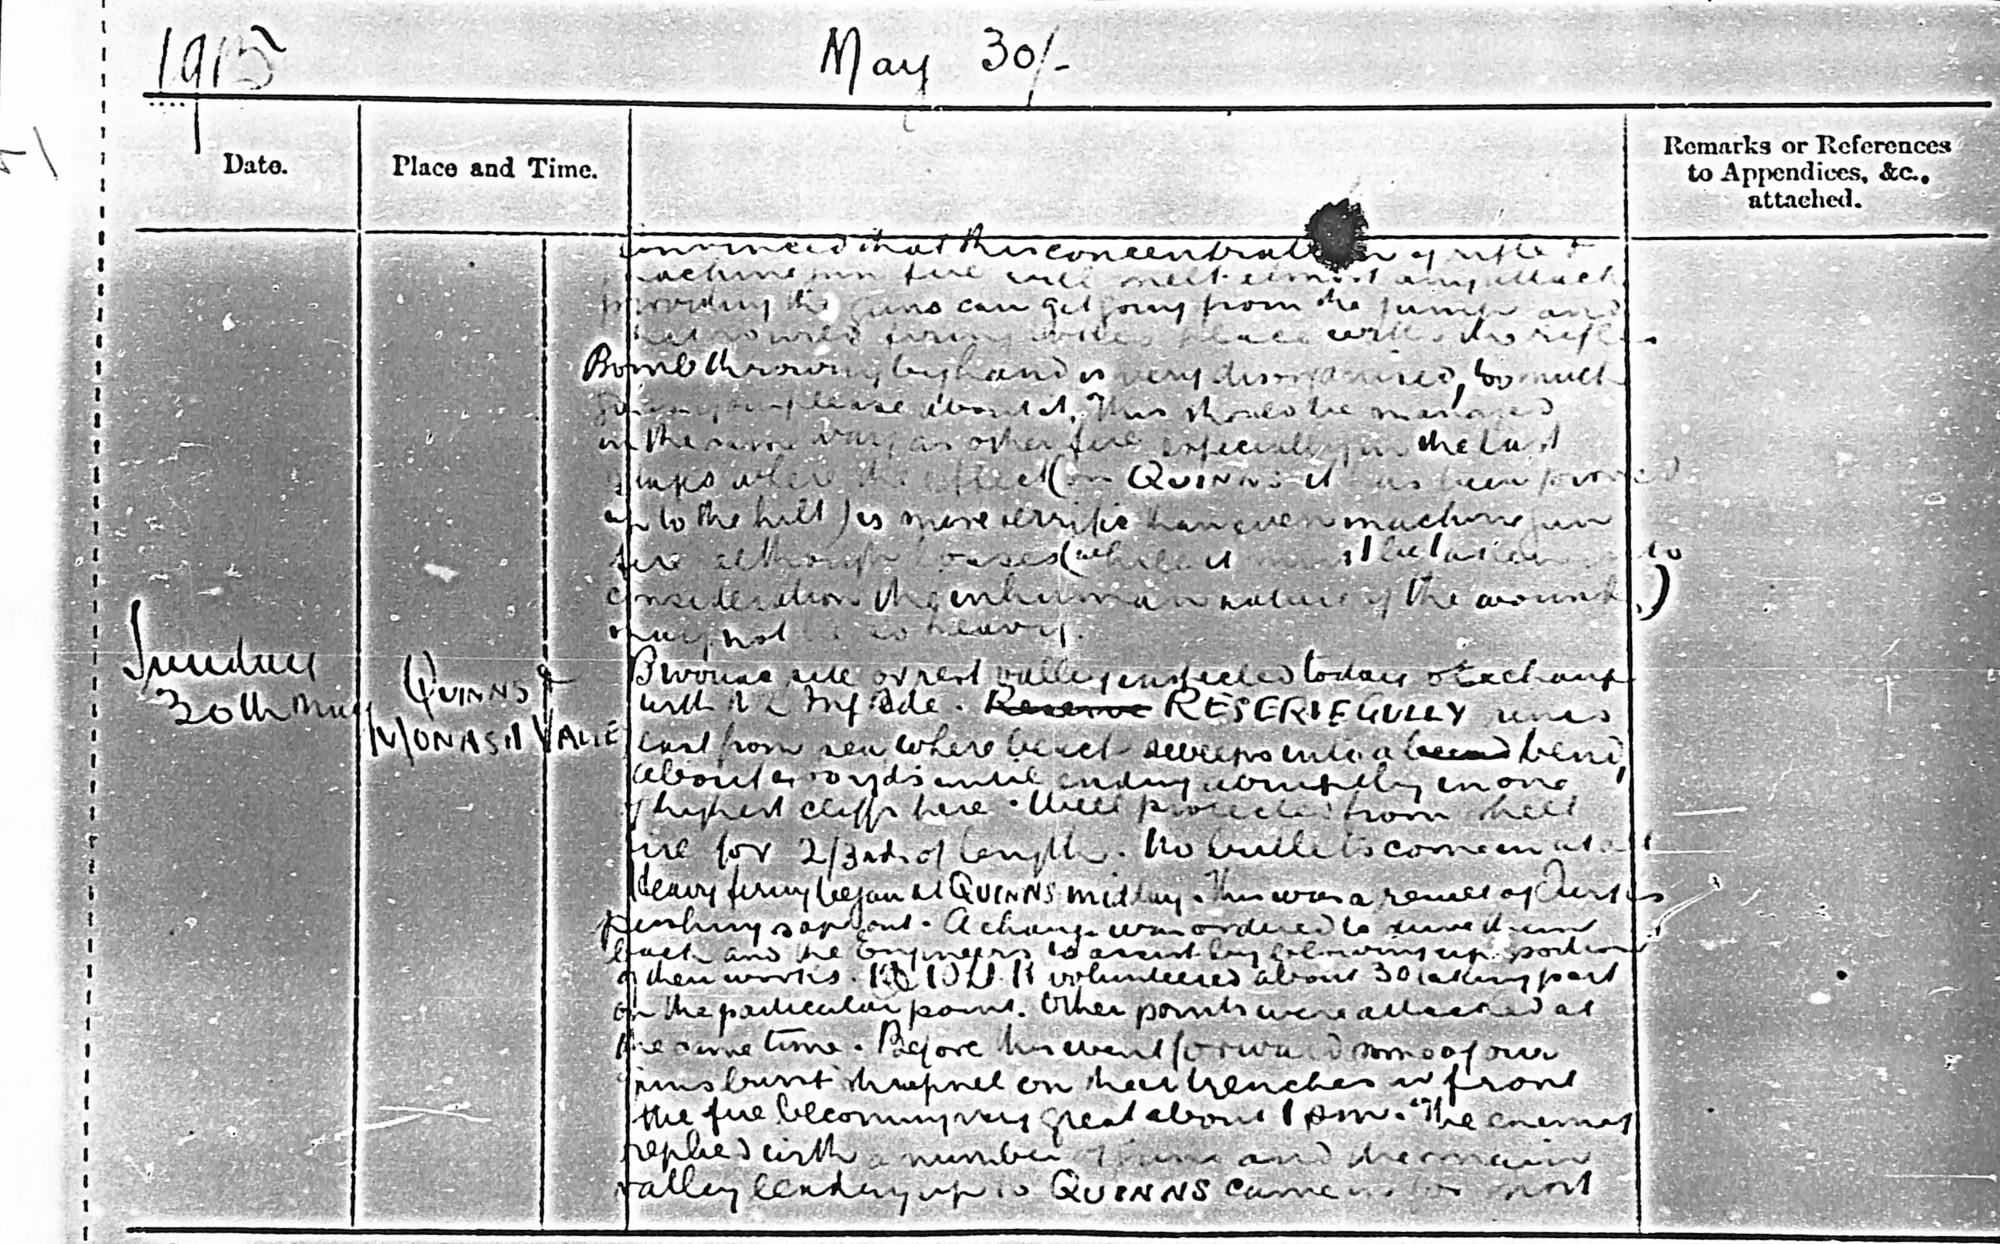 1915
May 30/-
Date.
Place and Time.
Remarks or References
to Appendices, &c.,
attached.
convinced that this concentration of rifle &
machine gun fire will melt almost any attack
providing the guns can get going from the jump and
firing takes place with the rifles
Bomb throwing by hand is very disorganised, too much
go as you please about it. This should be managed
in the same way as other fire especially in the last
stages where the effect (on QUINNS it has been proved
up to the hilt) is more terrific than even machine gun
fire although losses (while it must be taken into
consideration the inhuman nature of the wounds)
may not be so heavy.
Sunday
30th May
QUINNS &
MONASH VALLE
Bivouac site or rest valley inspected today to exchange
with N Z Inf Bde. Reserve RESERVE GULLY runs
east from sea where beach sweeps into a bend,
about 400 yds until ending abruptly in one
of highest cliffs here. Well protected from shell
fire for 2/3rds of length. No bullets come in at all
Heavy firing began at QUINNS midday. This was a result of Turks
pushing sap out. A charge was ordered to drive them
back and the Engineers to assist by blowing up portion
of their works. 10 L.H. volunteered about 30 taking part
on the particular point. Other points were attacked at
the same time. Before this went forward some of our
guns burst shrapnel on their trenches in front
the fire becoming very great about 1 pm. The enemy
replied with a number of guns and the main
valley leading up to QUINNS came in for most